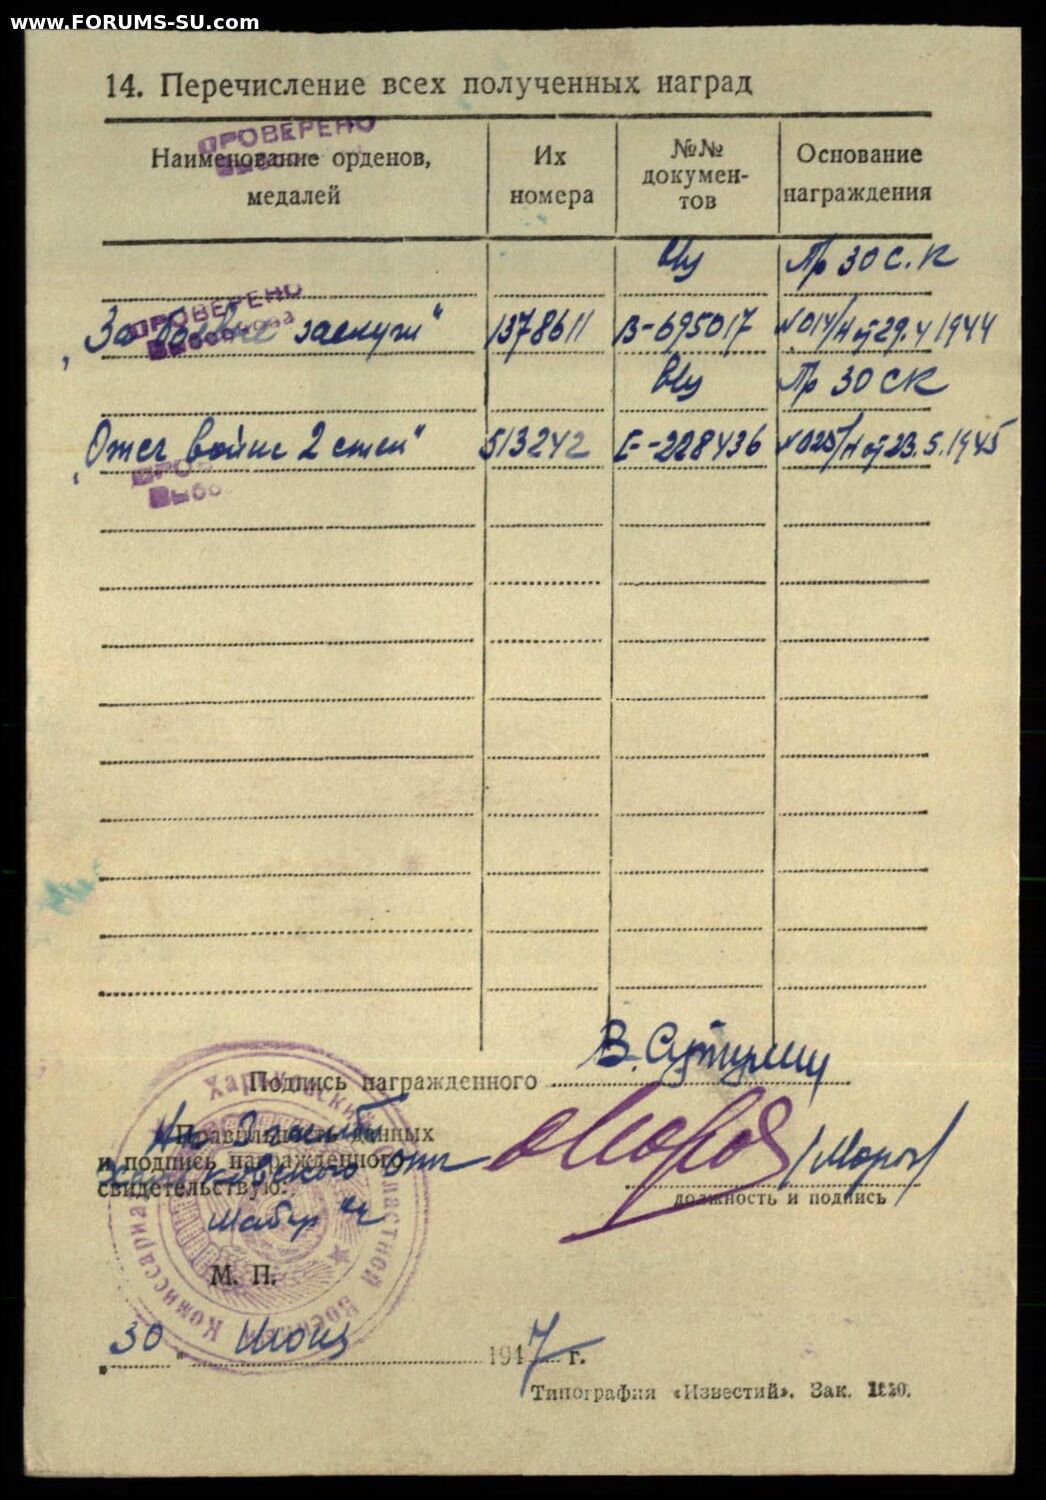 www.FORUMS-SU.com
14. Перечисление всех полученных наград
ПРОВЕРЕНО
Наименование орденов, медалей
Их номера
№№ документов
Основание награждения
вч Пр 30 С.К
ПРОВЕРЕНО
„За боевые заслуги" 1378611 В-695017 №014/н от 29.4 1944
вч Пр 30 СК
„Отеч войны 2 степ" 513242 Г-228436 №025/н от 23.5.1945
Подпись награжденного В.
Правильность данных
и подпись награжденного
свидетельствую:
/Мороз/
должность и подпись
Харьковский Областной Военный Комиссариат
М. П.
„30" Июня 1947 г.
Типография «Известий». Зак.